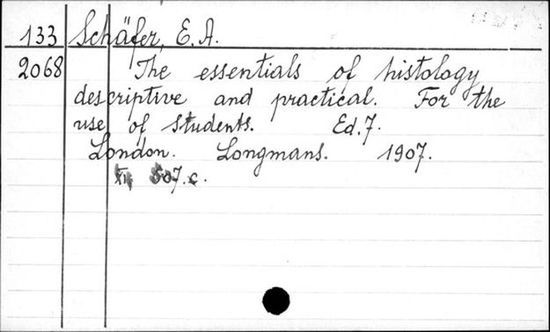 133 Schäfer, E. A.
2068 The essentials of histology
descriptive and practical. For the
use of students. Ed. 7.
London. Longmans. 1907.
507. c.